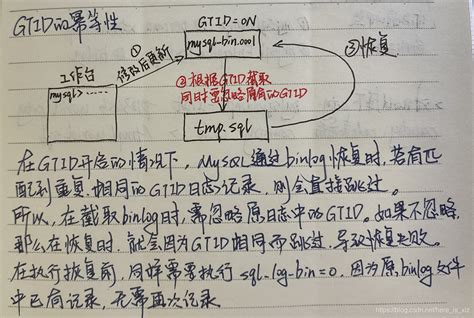 GTID的幂等性
GTID=ON
mysql-bin.0001
①
修改后更新
③恢复
工作台
mysql> ......
②根据GTID截取
同时需忽略原有的GTID
tmp.sql
在GTID开启的情况下，MySQL通过binlog恢复时，若有匹
配到重复、相同的GTID日志记录，则会直接跳过。
所以，在截取binlog时，需忽略原日志中的GTID。如果不忽略，
那么在恢复时，就会因为GTID相同而跳过，导致恢复失败。
在执行恢复前，同样需要执行 sql_log_bin=0，因为原binlog文件
中已有记录，无需再次记录